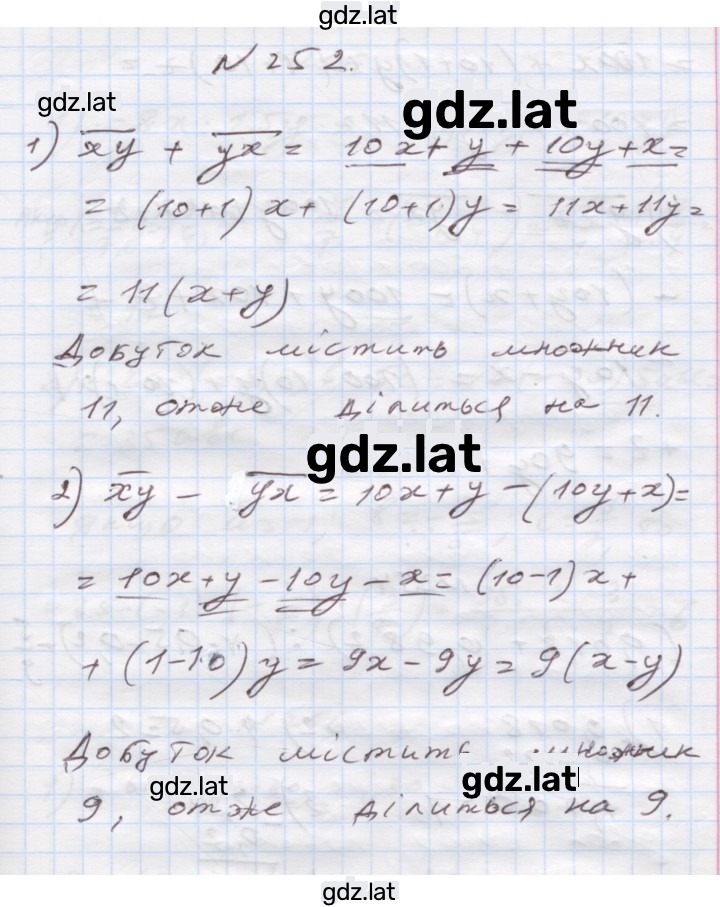 gdz.lat
N 252.
gdz.lat
gdz.lat
1) x̅y̅ + y̅x̅ = 10x + y + 10y + x =
= (10+1)x + (10+1)y = 11x + 11y =
= 11(x+y)
Добуток містить множник
11, отже ділиться на 11.
gdz.lat
2) x̅y̅ - y̅x̅ = 10x + y - (10y + x) =
= 10x + y - 10y - x = (10-1)x +
+ (1-10)y = 9x - 9y = 9(x-y)
Добуток містить множник
gdz.lat
gdz.lat
9, отже ділиться на 9.
gdz.lat